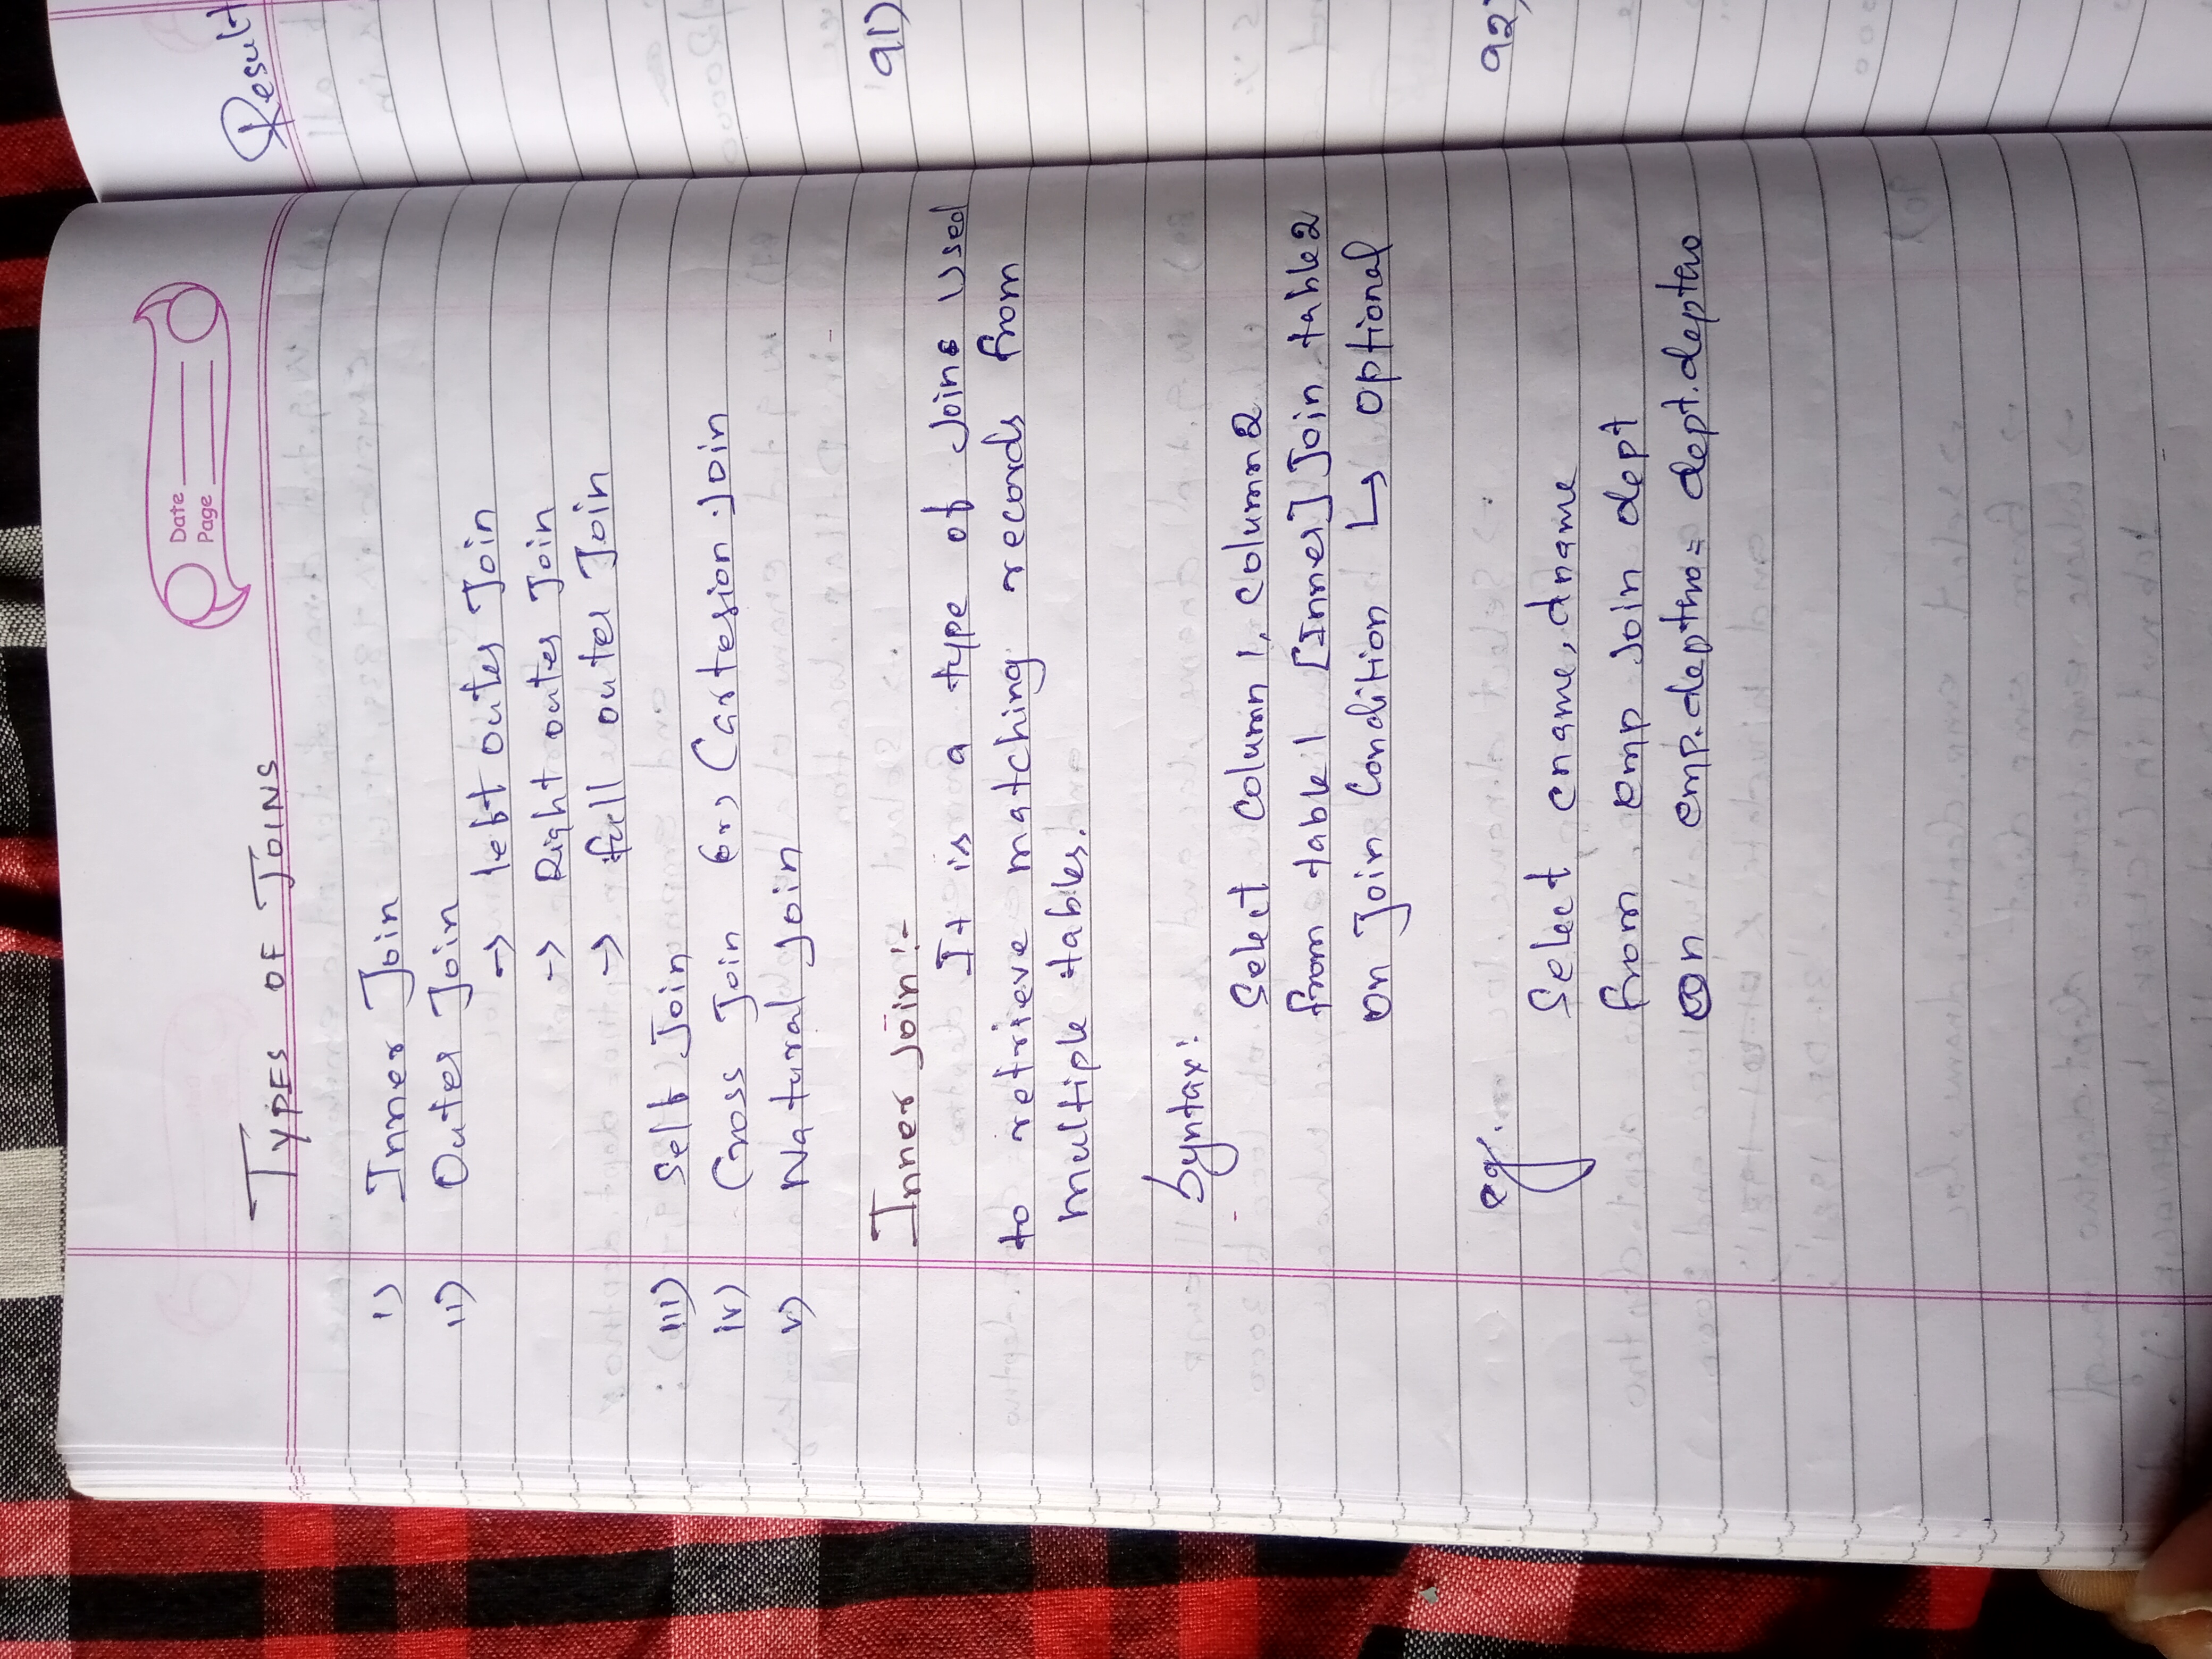 Date
Page
TYPES OF JOINS
i) Inner Join
ii) Outer Join
→ left outer Join
→ Right outer Join
→ full outer Join
iii) Self Join
iv) Cross Join (or) Cartesion Join
v) Natural Join
Inner Join :-
It is a type of Joins used
to retrieve matching records from
multiple tables.
Syntax:
Select column 1, column2
from table 1 [Inner] Join table2
on Join Condition ↳ optional
eg:
Select ename, dname
from emp Join dept
on emp.deptno = dept.deptno
Result
q1)
q2)